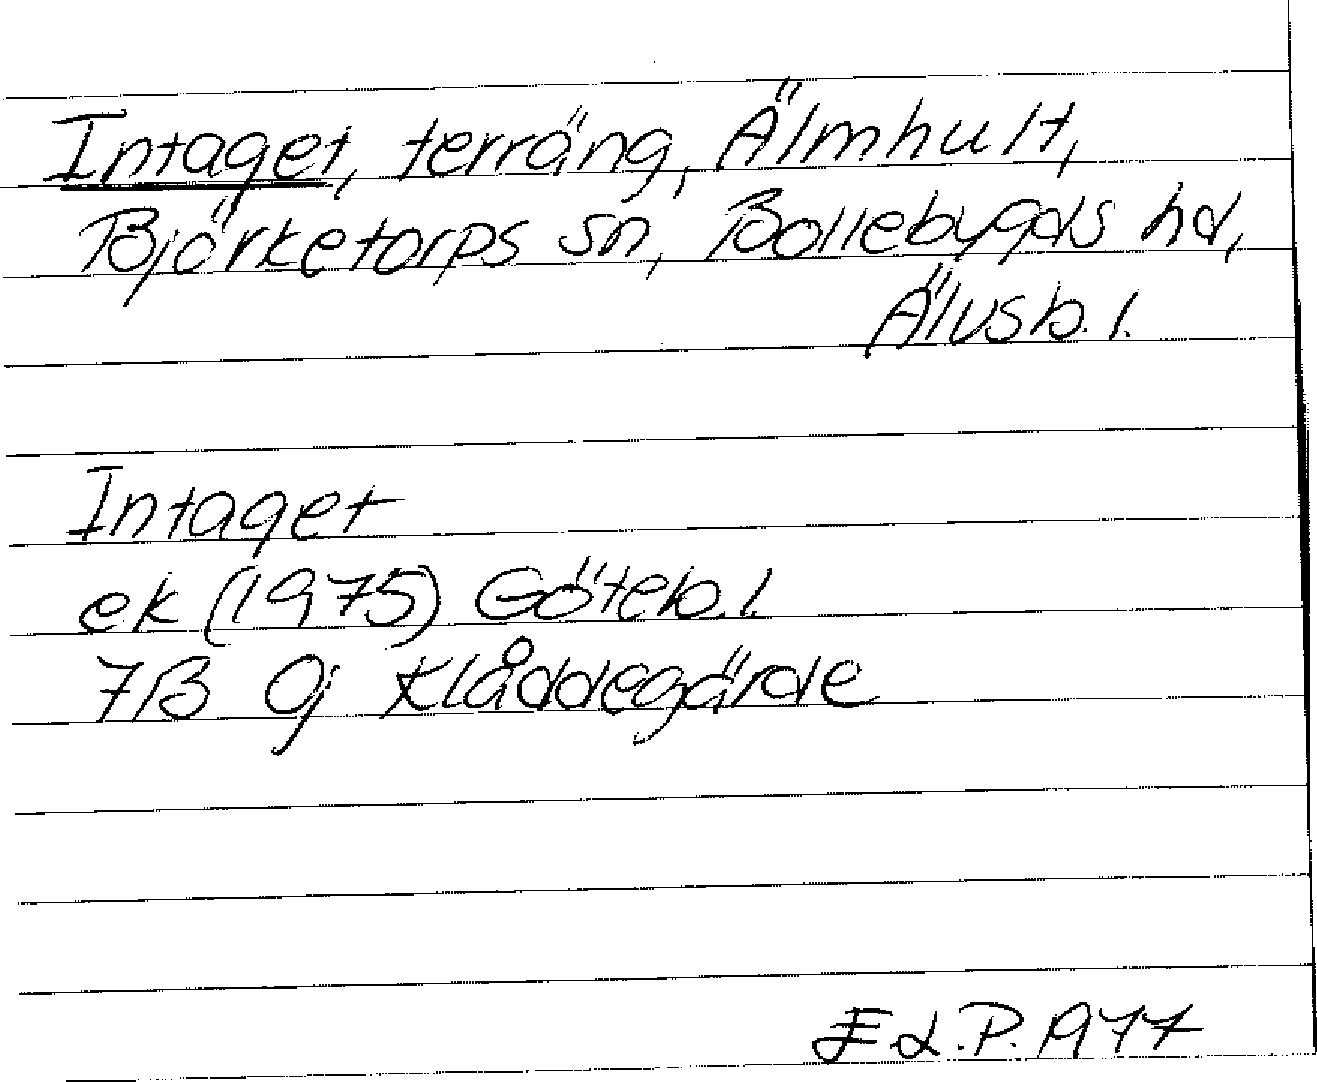 Intaget, terräng, Älmhult,
Björketorps sn, Bollebygds hd,
Älvsb. l.
Intaget
ek (1975) Göteb. l.
7B 0j Klåddegärde
E L.P. 1977